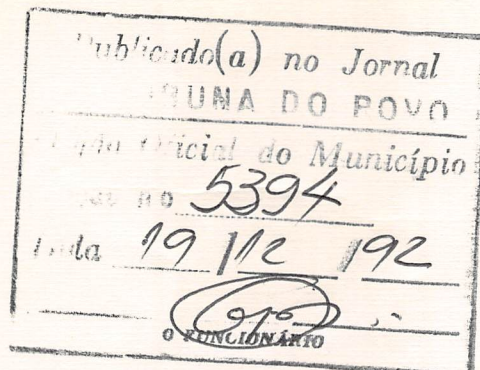 Publicado(a) no Jornal
TRIBUNA DO POVO
Oficial do Município
no 5394
Data 19/12/92
O FUNCIONÁRIO